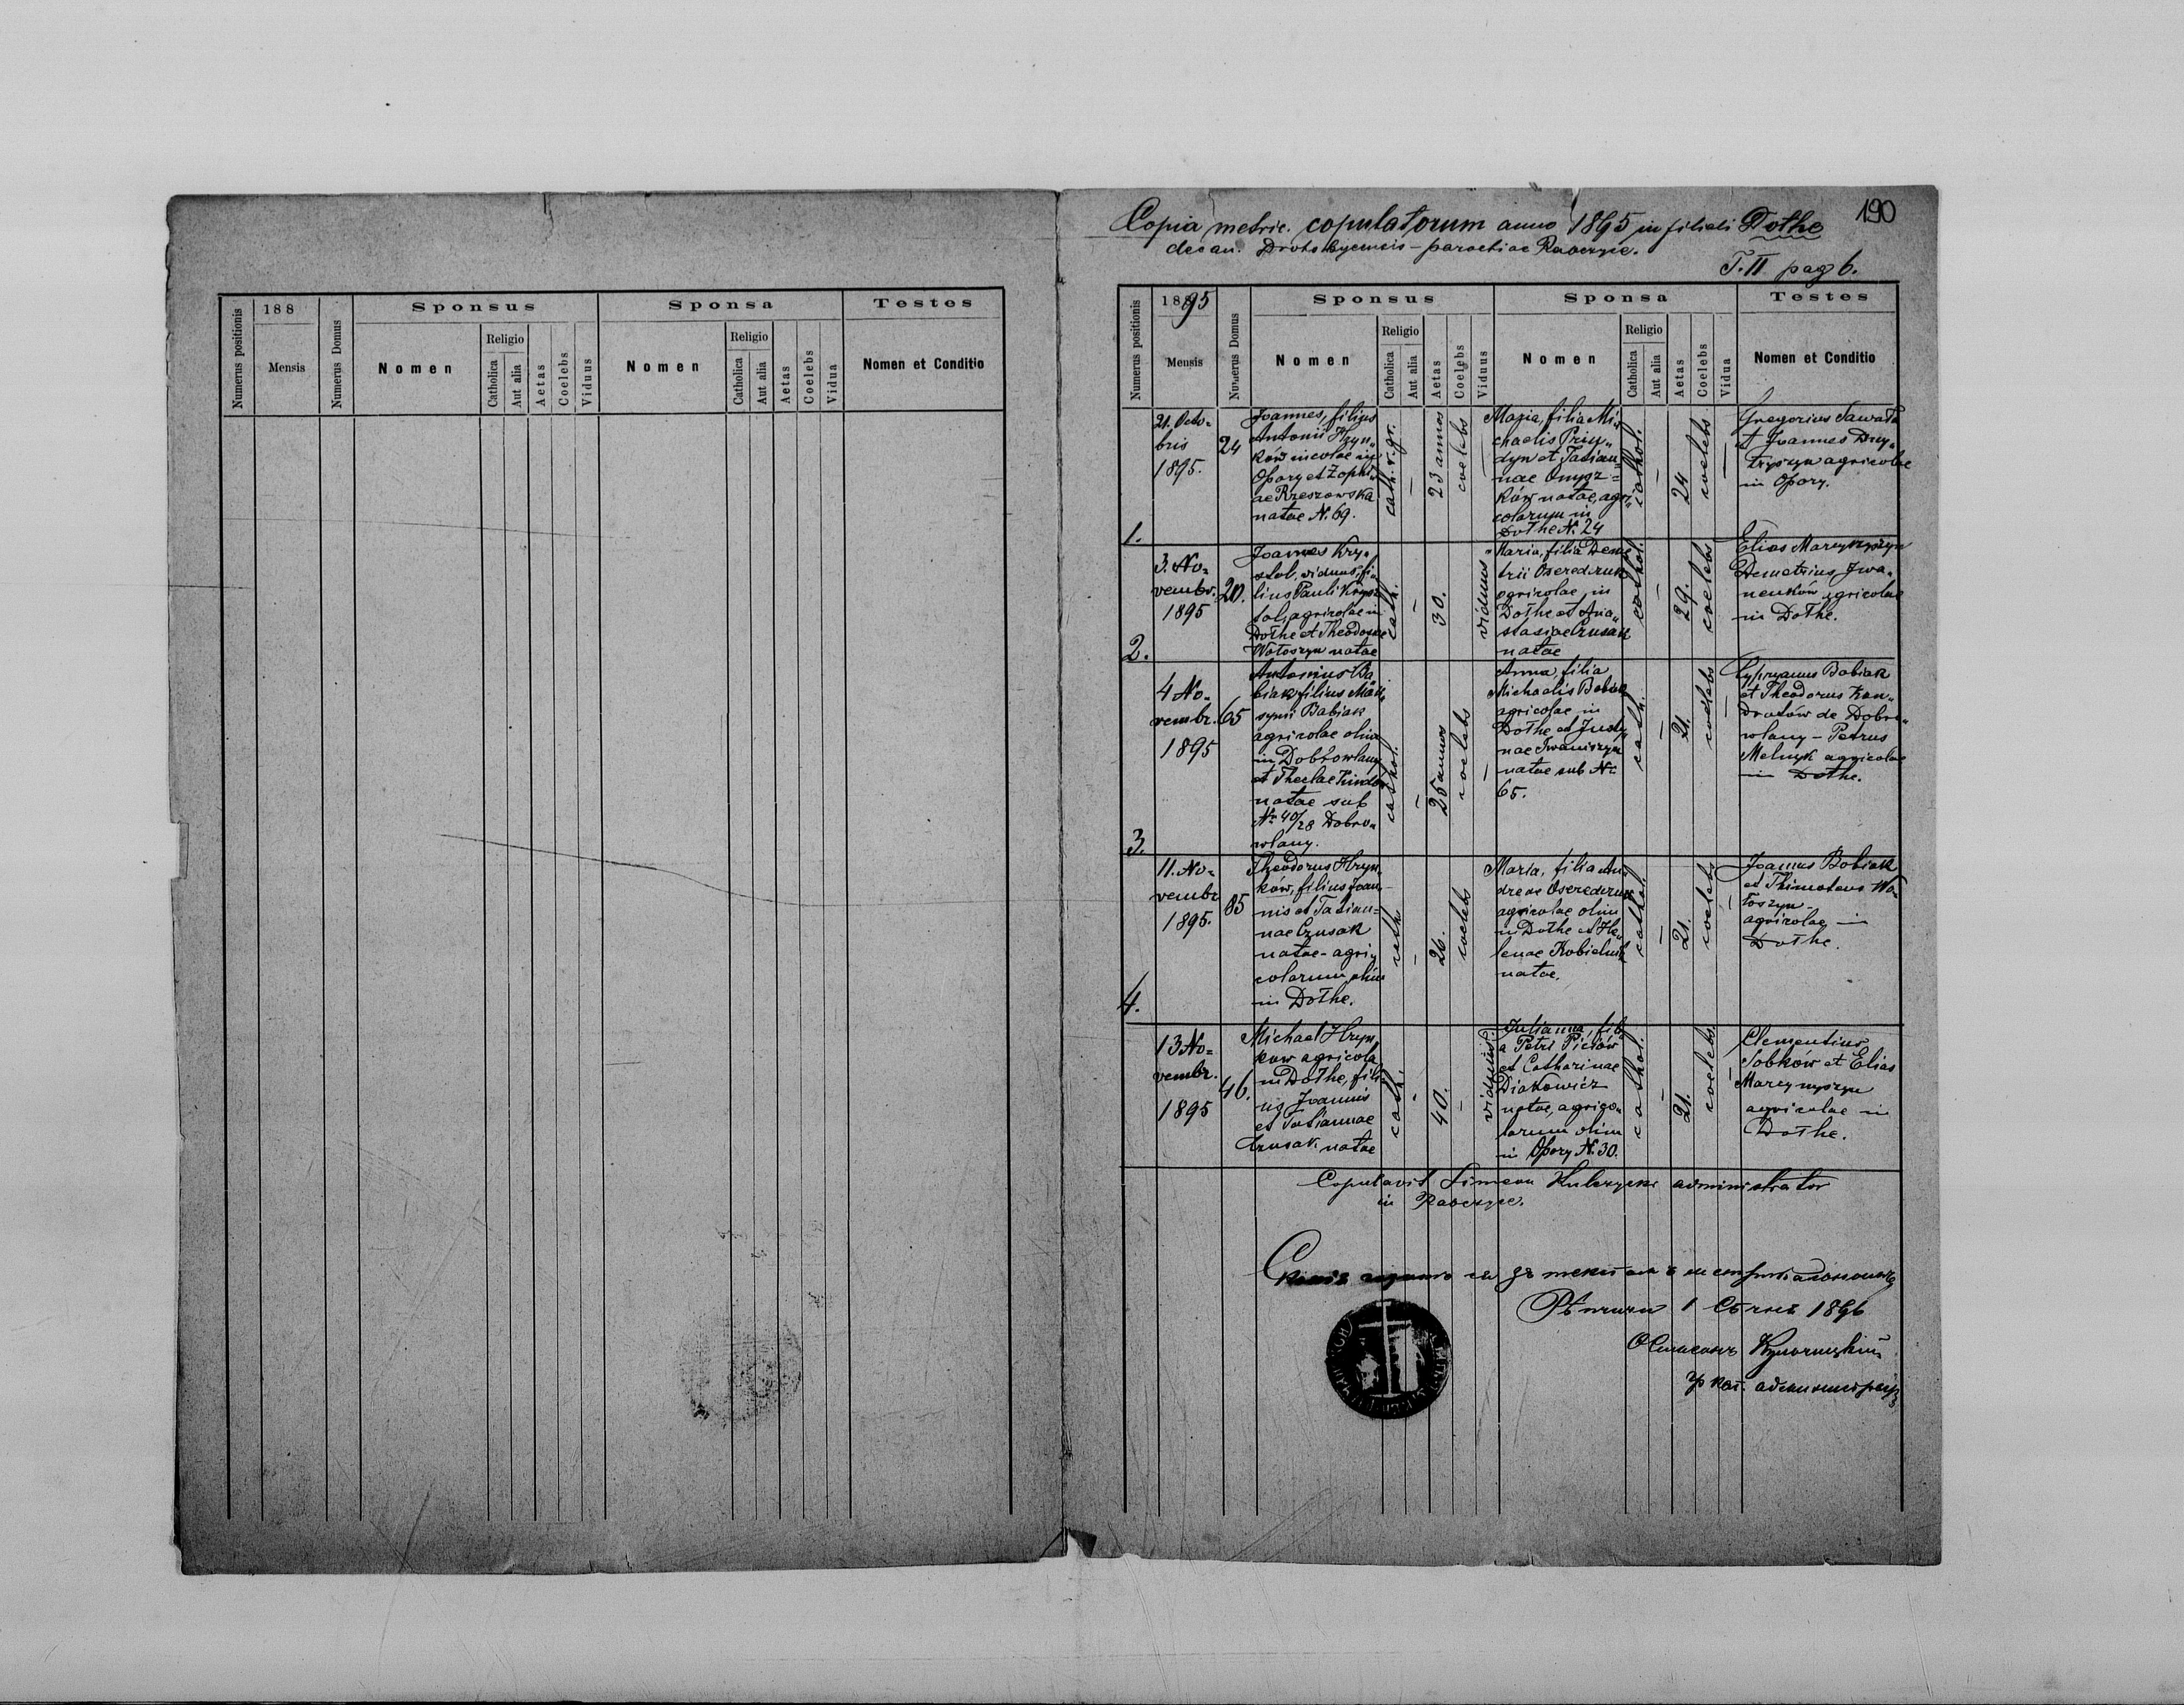 188
Sponsus
Sponsa
Testes
Numerus positionis
Mensis
Numerus Domus
Nomen
Religio
Catholica
Aut alia
Aetas
Coelebs
Viduus
Nomen
Religio
Catholica
Aut alia
Aetas
Coelebs
Vidua
Nomen et Conditio
190
Copia metric. copulatorum anno 1895 in filiali Dołhe
decan. Drohobycensis – parochiae Raberyce.
T. II pag 6.
1895
Sponsus
Sponsa
Testes
Numerus positionis
Mensis
Numerus Domus
Nomen
Religio
Catholica
Aut alia
Aetas
Coelebs
Viduus
Nomen
Religio
Catholica
Aut alia
Aetas
Coelebs
Vidua
Nomen et Conditio
1.
21. Octo=
bris
1895.
24
Joannes, filius
Antonii Hryn„
ków incolae in
Opory et Zophi„
ae Rzeszowska
natae N. 69.
cath. r. gr.
–
23 annos
coelebs
–
Maria, filia Mi„
chaelis Pryy„
dyn et Tatian„
nae
ków natae, agri„
colarum in
Dołhe N. 24
cathol.
–
24
coelebs
–
Gregorius Sawała
et Joannes Dmy„
tryszyn agricolae
in Opory.
2.
3. No=
vembr.
1895
20.
Joannes Kry„
stol, viduus, fi„
lius Pauli Kryś
tol, agricolae in
Dołhe et Theodosiae
Wołoszyn natae
cath.
–
30.
viduus
Maria, filia Deme
trii Oseredczuk
agricolae in
Dołhe et Ana„
stasiae Czusak
natae
cathol.
–
29.
coelebs
Elias Marcynyszyn
Demetrius Iwa„
nenków agricolae
in Dołhe.
3.
4 No=
vembr.
1895
65
Antonius Ba„
biak filius Mak„
symi Babiak
agricolae olim
in Dobrowlany
et Theclae
natae sub
Nr 40/28 Dobro„
wlany.
cathol.
–
25 annos
coelebs
–
Anna, filia
Michaelis Babiak
agricolae in
Dołhe et Justy
nae Iwaniszyn
natae sub Nr
65.
cath.
–
21.
coelebs
–
Cyprianus Babiak
et Theodorus Kon„
dratów de Dobro„
wlany – Petrus
Melnyk agricolae
in Dołhe.
4.
11. No=
vembr
1895.
85
Theodorus Hryn„
ków, filius Joan„
nis et Tatian=
nae Czusak
natae – agri„
colarum olim
in Dołhe.
cath.
–
26.
coelebs
Maria, filia An„
dreae Oseredczuk
agricolae olim
in Dołhe et He„
lenae
natae.
cathol.
–
21.
coelebs
–
Joannes Babiak
et Thimoteus Wo„
łoszyn –
agricolae in
Dołhe.
13 No=
vembr.
1895
46.
Michael Hryn„
ków agricola
in Dołhe, fili„
us Joannis
et Tatiannae
Czusak natae
cath.
–
40.
–
viduus.
Julianna, fili
a Petri Piciów
et Catharinae
Diakowicz
natae, agrico„
larum olim
in Opory N. 30.
cathol.
–
21.
coelebs.
–
Clementius
Sobków et Elias
Marcynyszyn
agricolae in
Dołhe.
Copulavit Simeon Kulczycki administrator
in Raberyce.
1896